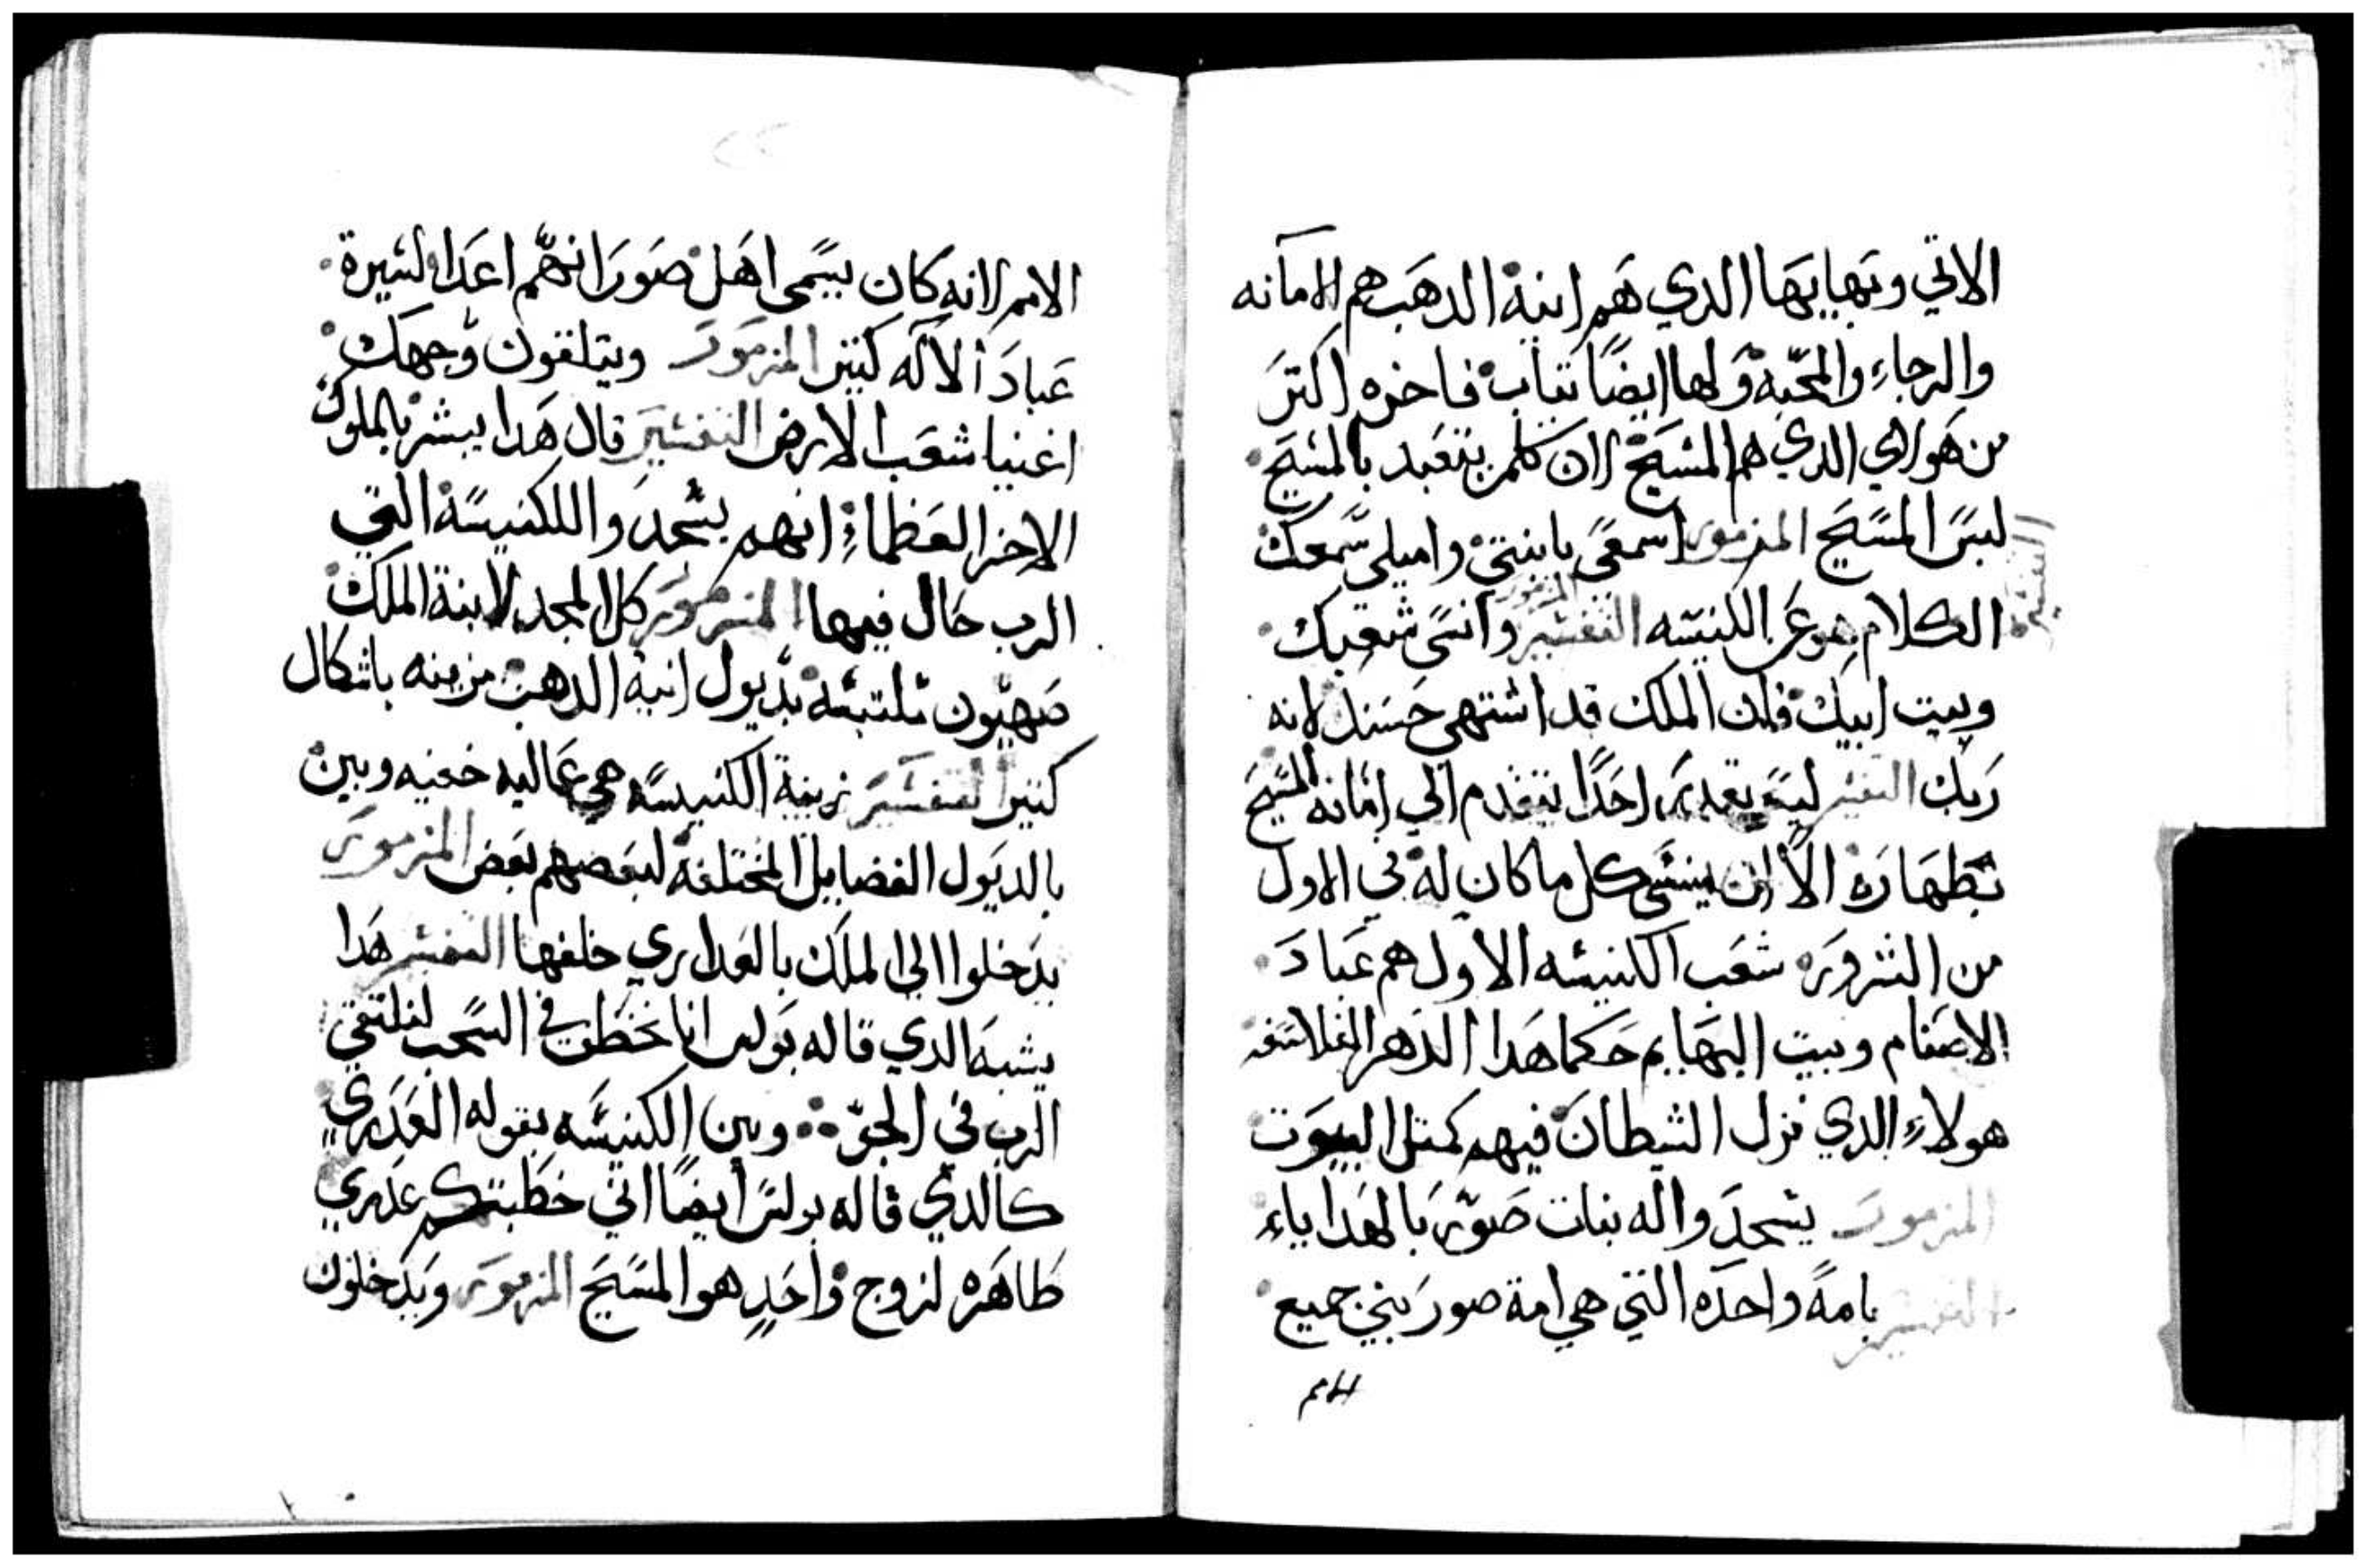 الاتي وبهايها الدي هم انية الدهب هم الامانه
والرجاء والمحبة ولها ايضا تياب فاخره اكتر
من هولاي الدي هم المسيح لان كلمن يتعبد بالمسيح
لبس المسيح المزمور اسمعي يابنتي واميلي سمعك
التفسير
الكلام هو عن الكنيسه التفسير المزمور وانسي شعبك
وبيت ابيك فان الملك قد اشتهي حسنك لانه
ربك التفسير ليس يقدر احدا يتقدم الي امانة المسيح
بطهارة الا ان ينسي كل ما كان له في الاول
من الشرور شعب الكنيسه الاول هم عباد
الاصنام وبيت البهايم حكما هدا الدهر الفلاسفه
هولاء الدي نزل الشيطان فيهم كمتل البيوت
المزمور يسجدوا له بنات صور بالهدايا
التفسير بامة واحده التي هي امة صور بني جميع
الامم
الامم لانه كان يسمي اهل صور انهم اعدا لسيرة
عباد الاله كتير المزمور ويتلقون وجهك
اغنيا شعب الارض التفسير قال هدا يبشر بالملوك
الاخر العظماء انهم يسجدوا للكنيسة التي
الرب حال فيها المزمور كل المجد لابنة الملك
صهيون متلبسة بديول انية الدهب مزينه باشكال
كتير التفسير زينة الكنيسه هي عاليه خفيه وبين
بالديول الفضايل المختلفة لبعضهم بعض المزمور
يدخلوا الي الملك بالعداري خلفها التفسير هدا
يشبه الدي قاله بولس انا نخطف في السحب لنلتقي
الرب في الجو وبين الكنيسه بقوله العدري
كالدي قاله بولس ايضا اني خطبتكم عدري
طاهره لزوج واحد هو المسيح المزمور ويدخلون